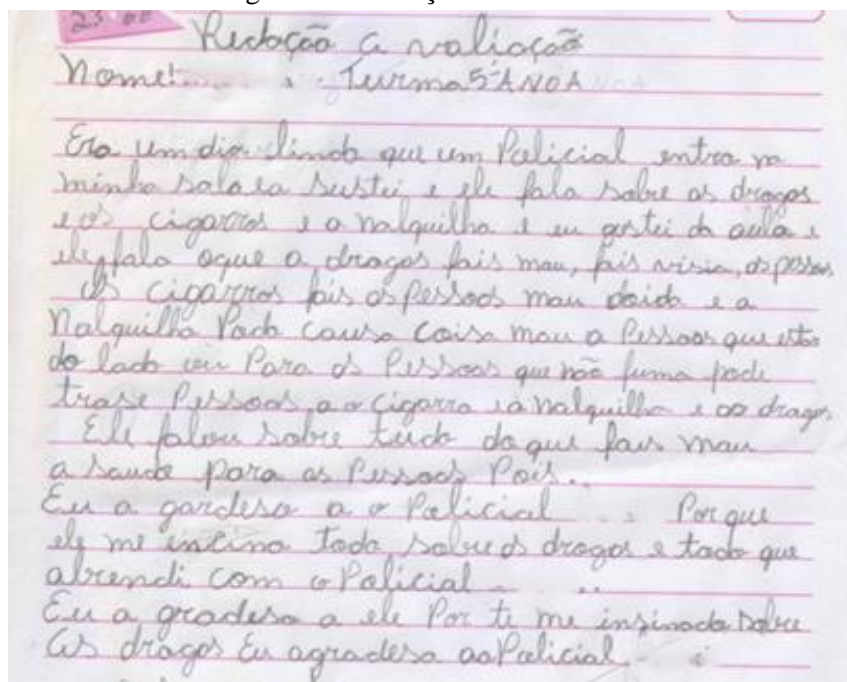 Redação a valiação
Nome: Turma 5º ANO A
Era um dia lindo que um Policial entra na
minha sala ea sustei e ele fala sobre as drogas
e os cigarros e a nalquilha e eu gostei da aula e
ele fala oque a drogas fais mau, fais visia, as pessoas
os cigarros fais as Pessoas mau doido e a
Nalquilha Pode causa coisa mau a Pessoas que esta
do lado ou Para as Pessoas que não fuma pode
trase Pessoas a o cigarro ea nalquilha e as drogas
Ele falou sobre tudo do que fais mau
a saude para as Pessoas Pois..
Eu a gardeso a o Policial Por que
ele me encina toda sobre as drogas e tado que
abrendi com o Policial
Eu a gradeso a ele Por ti me insinado sobre
as drogas Eu agradesa ao Policial